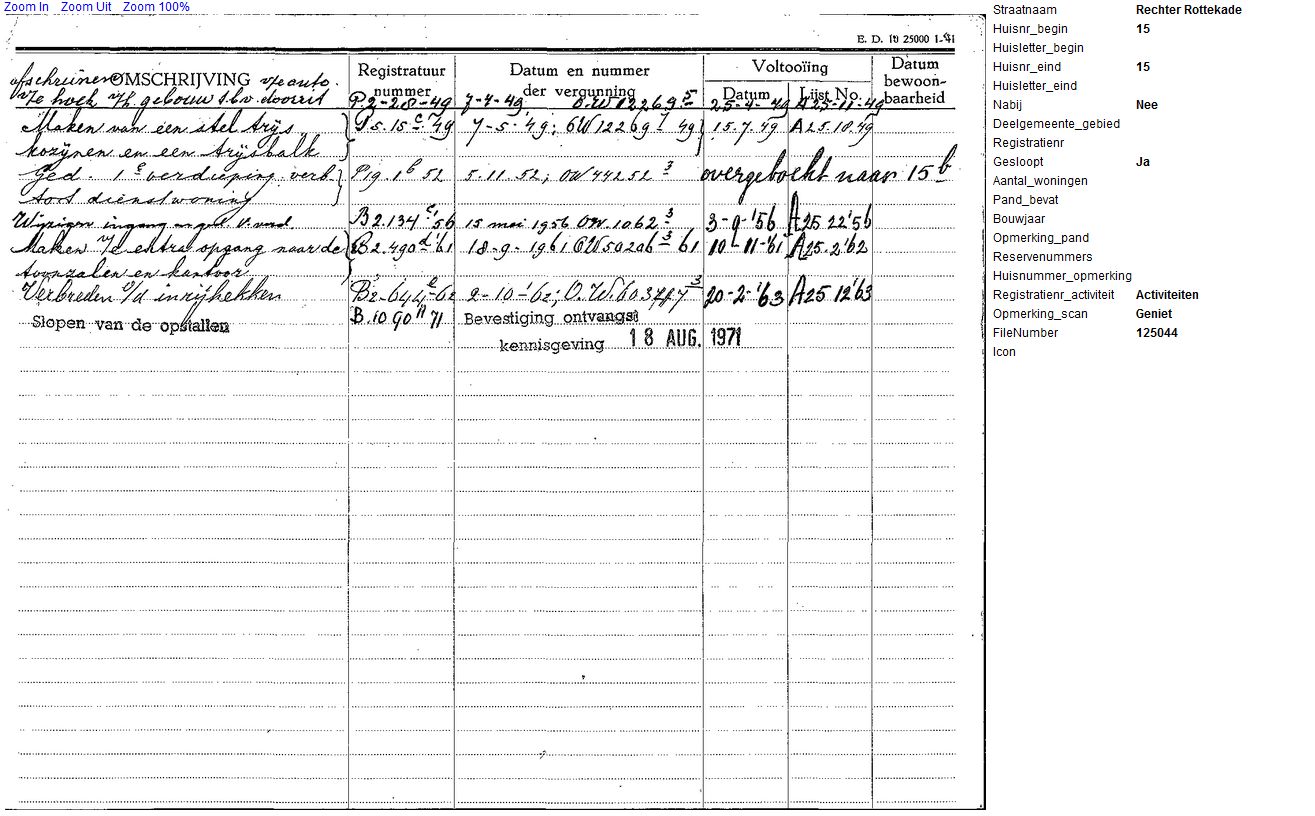 Zoom In Zoom Uit Zoom 100%
E. D. 25000 1-'41
afschuinen OMSCHRIJVING v/e auto.
v/e hoek v/h. gebouw t.b.v. doorrit
Registratuur
nummer
Datum en nummer
der vergunning
Voltooiing
Datum Lijst No.
Datum
bewoon-
baarheid
P.2-28-49 7-4-49 O.W 12269 5 25-4-49 A 25-11-49
Maken van een stel trijs P5.15 c '49 7-5-'49; OW 12269 7 49 15.7.49 A25.18.49
kozijnen en een trijsbalk
Ged. 1e verdieping verb. P19.1 b 52 5.11.52; OW 44252 3 overgeboekt naar 15 b
tot dienstwoning
Wijzigen ingang B2.134 c '56 15 mei 1956 OW.1062 3 3-9-'56 A25 22'56
Maken v/e extra opgang naar de B2.490 d '61 18-9-1961 OW50206 3 61 10-11-'61 A25.2'62
toonzalen en kantoor
Verbreden v/d inrijhekken B2-644 e-62 2-10-'62; O.W. 603777 3 20-2-'63 A25 12'63
Slopen van de opstallen B.10 90 H 71 Bevestiging ontvangst
kennisgeving 18 AUG. 1971
Straatnaam Rechter Rottekade
Huisnr_begin 15
Huisletter_begin
Huisnr_eind 15
Huisletter_eind
Nabij Nee
Deelgemeente_gebied
Registratienr
Gesloopt Ja
Aantal_woningen
Pand_bevat
Bouwjaar
Opmerking_pand
Reservenummers
Huisnummer_opmerking
Registratienr_activiteit Activiteiten
Opmerking_scan Geniet
FileNumber 125044
Icon